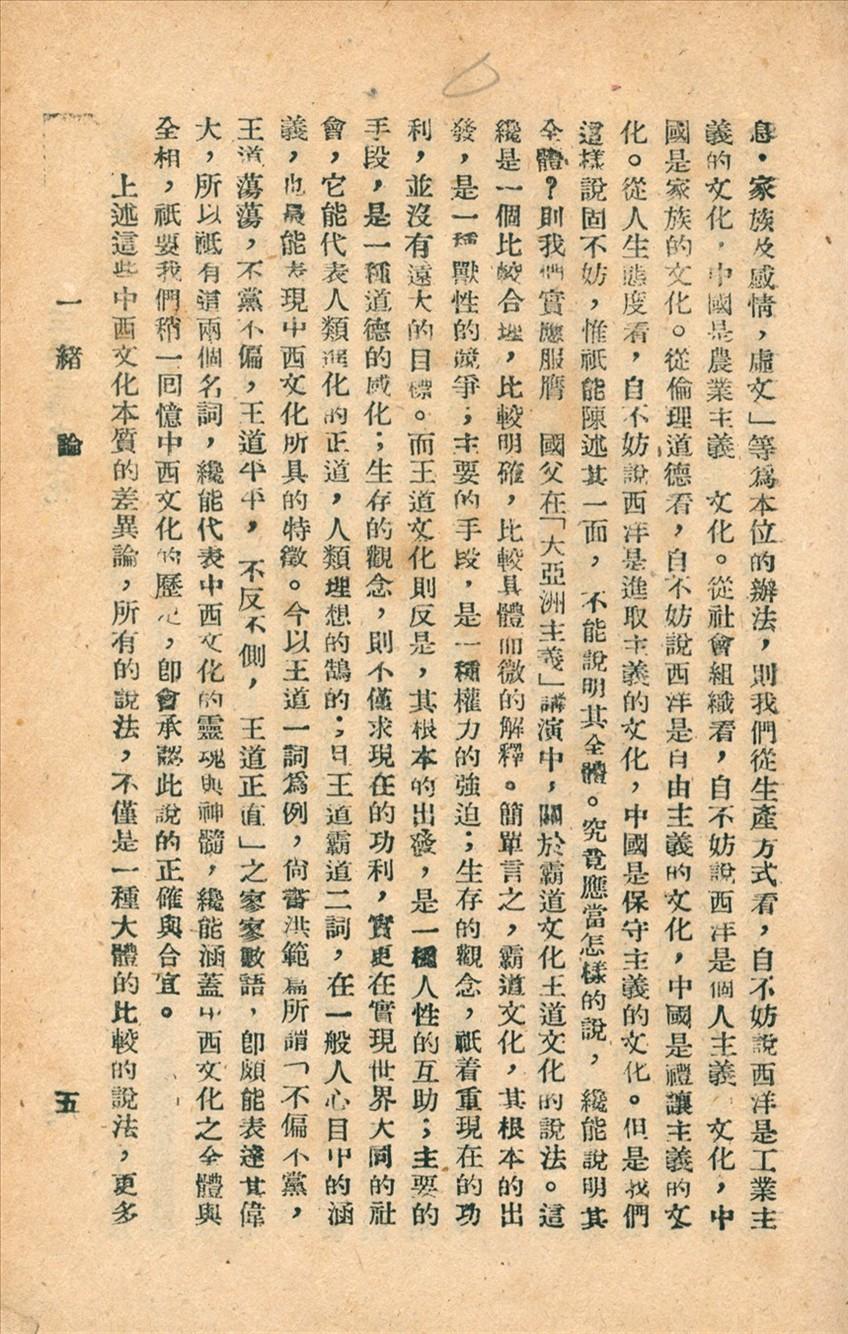 息・家族及感情，虛文」等爲本位的辦法，則我們從生產方式看，自不妨說西洋是工業主
義的文化，中國是農業主義　文化。從社會組織看，自不妨說西洋是個人主義　文化，中
國是家族的文化。從倫理道德看，自不妨說西洋是自由主義的文化，中國是禮讓主義的文
化。從人生態度看，自不妨說西洋是進取主義的文化，中國是保守主義的文化。但是我們
這樣說固不妨，惟祇能陳述其一面，不能說明其全體。究竟應當怎樣的說，纔能說明其
全體？則我們實應服膺　國父在「大亞洲主義」講演中，關於霸道文化王道文化的說法。這
纔是一個比較合理，比較明確，比較具體而微的解釋。簡單言之，霸道文化，其根本的出
發，是一種獸性的競爭；主要的手段，是一種權力的強迫；生存的觀念，祇着重現在的功
利，並沒有遠大的目標。而王道文化則反是，其根本的出發，是一種人性的互助；主要的
手段，是一種道德的感化；生存的觀念，則不僅求現在的功利，實更在實現世界大同的社
會，它能代表人類進化的正道，人類理想的鵠的；且王道霸道二詞，在一般人心目中的涵
義，也最能表現中西文化所具的特徵。今以王道一詞爲例，尙書洪範篇所謂「不偏不黨，
王道蕩蕩，不黨不偏，王道平平，不反不側，王道正直」之寥寥數語，卽頗能表達其偉
大，所以祇有這兩個名詞，纔能代表中西文化的靈魂與神髓，纔能涵蓋中西文化之全體與
全相，祇要我們稍一回憶中西文化的歷，卽會承認此說的正確與合宜。
上述這些中西文化本質的差異論，所有的說法，不僅是一種大體的比較的說法，更多
一緒　論
五